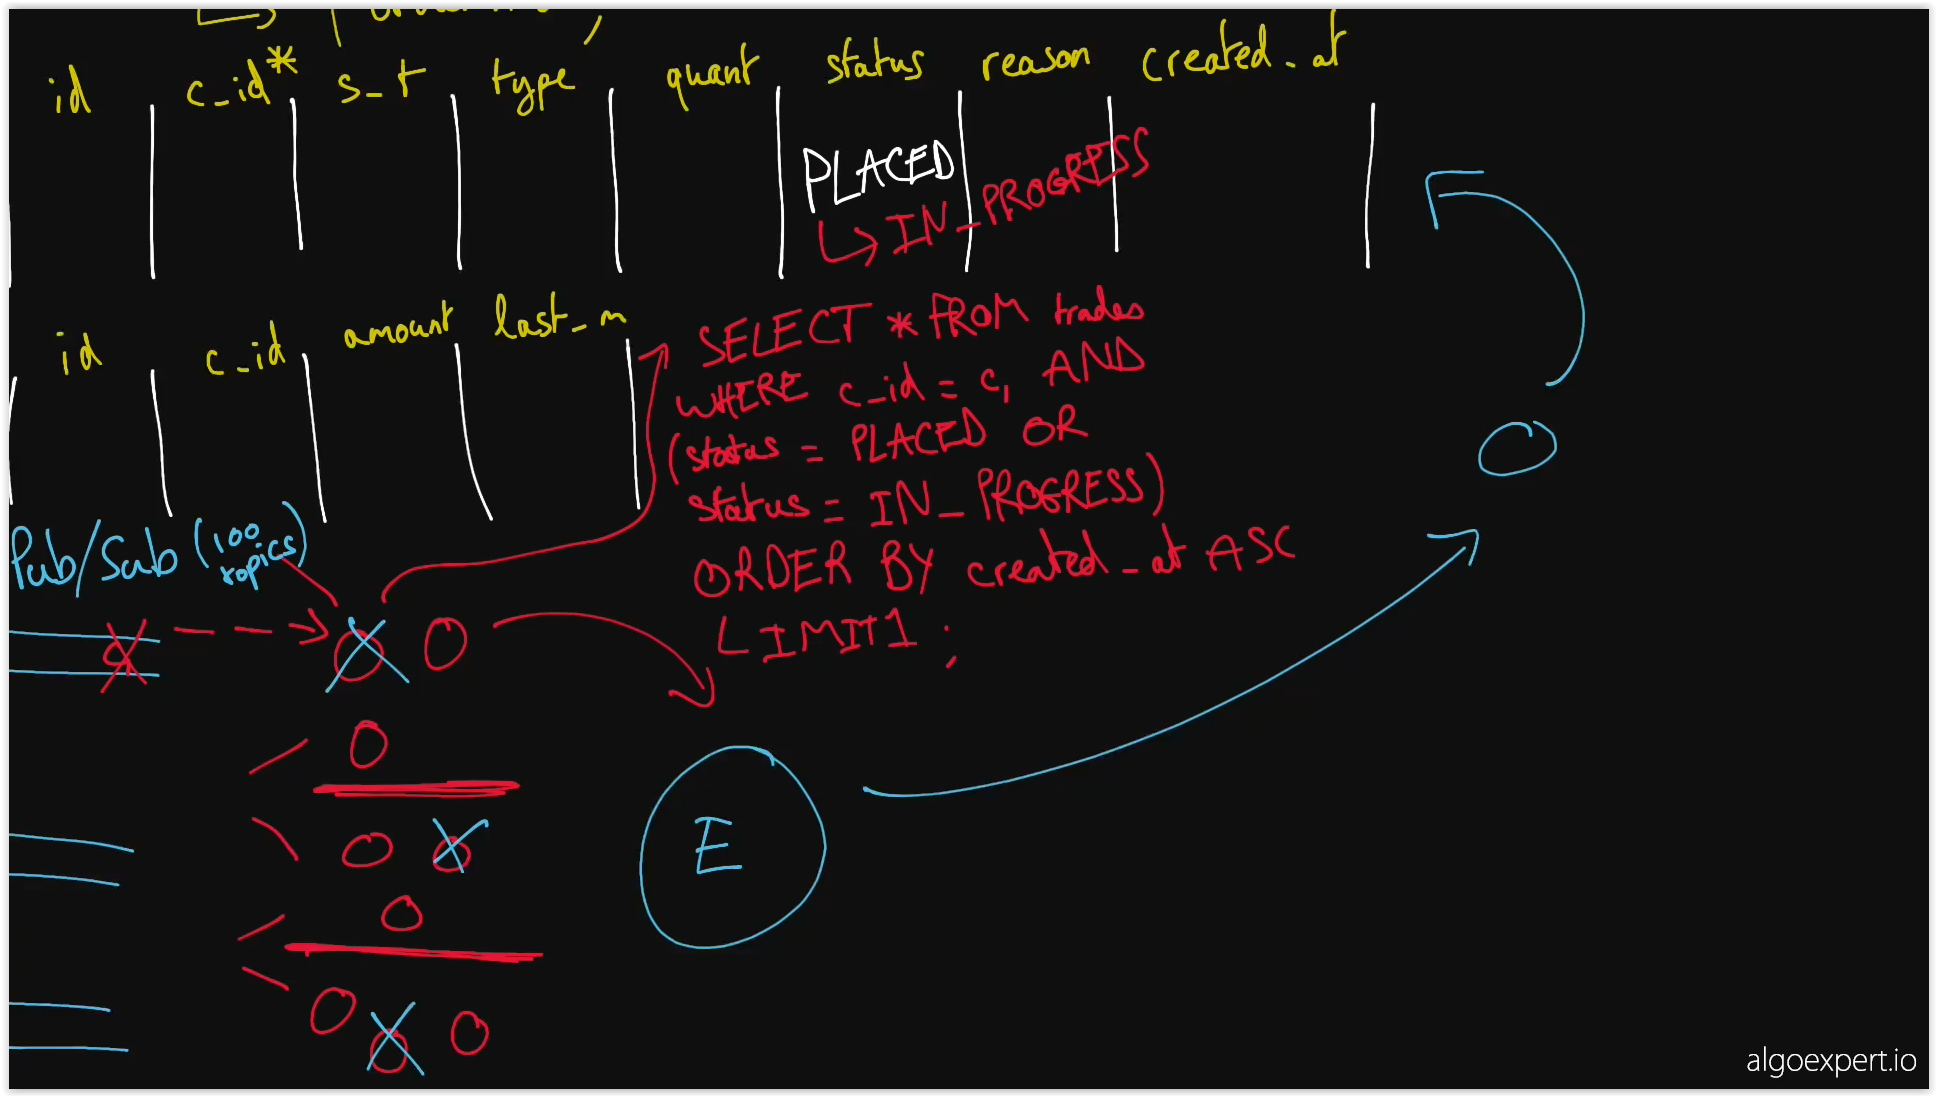 id c_id* s_t type quant status reason created_at
PLACED
IN_PROGRESS
id c_id amount last_m
SELECT * FROM trades
WHERE c_id = c, AND
(status = PLACED OR
status = IN_PROGRESS)
ORDER BY created_at ASC
LIMIT 1;
Pub/Sub (100
topics)
E
algoexpert.io